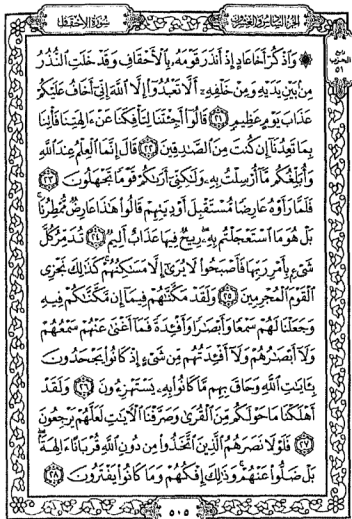 الجزء السادس والعشرون
سورة الأحقاف
ربع
الحزب
٥١
۞ وَٱذْكُرْ أَخَا عَادٍ إِذْ أَنذَرَ قَوْمَهُۥ بِٱلْأَحْقَافِ وَقَدْ خَلَتِ ٱلنُّذُرُ
مِنۢ بَيْنِ يَدَيْهِ وَمِنْ خَلْفِهِۦٓ أَلَّا تَعْبُدُوٓا۟ إِلَّا ٱللَّهَ إِنِّىٓ أَخَافُ عَلَيْكُمْ
عَذَابَ يَوْمٍ عَظِيمٍ ٢١ قَالُوٓا۟ أَجِئْتَنَا لِتَأْفِكَنَا عَنْ ءَالِهَتِنَا فَأْتِنَا
بِمَا تَعِدُنَآ إِن كُنتَ مِنَ ٱلصَّٰدِقِينَ ٢٢ قَالَ إِنَّمَا ٱلْعِلْمُ عِندَ ٱللَّهِ
وَأُبَلِّغُكُم مَّآ أُرْسِلْتُ بِهِۦ وَلَٰكِنِّىٓ أَرَىٰكُمْ قَوْمًا تَجْهَلُونَ ٢٣
فَلَمَّا رَأَوْهُ عَارِضًا مُّسْتَقْبِلَ أَوْدِيَتِهِمْ قَالُوا۟ هَٰذَا عَارِضٌ مُّمْطِرُنَا
بَلْ هُوَ مَا ٱسْتَعْجَلْتُم بِهِۦ رِيحٌ فِيهَا عَذَابٌ أَلِيمٌ ٢٤ تُدَمِّرُ كُلَّ
شَىْءٍۭ بِأَمْرِ رَبِّهَا فَأَصْبَحُوا۟ لَا يُرَىٰٓ إِلَّا مَسَٰكِنُهُمْ كَذَٰلِكَ نَجْزِى
ٱلْقَوْمَ ٱلْمُجْرِمِينَ ٢٥ وَلَقَدْ مَكَّنَّٰهُمْ فِيمَآ إِن مَّكَّنَّٰكُمْ فِيهِ
وَجَعَلْنَا لَهُمْ سَمْعًا وَأَبْصَٰرًا وَأَفْـِٔدَةً فَمَآ أَغْنَىٰ عَنْهُمْ سَمْعُهُمْ
وَلَآ أَبْصَٰرُهُمْ وَلَآ أَفْـِٔدَتُهُم مِّن شَىْءٍ إِذْ كَانُوا۟ يَجْحَدُونَ
بِـَٔايَٰتِ ٱللَّهِ وَحَاقَ بِهِم مَّا كَانُوا۟ بِهِۦ يَسْتَهْزِءُونَ ٢٦ وَلَقَدْ
أَهْلَكْنَا مَا حَوْلَكُم مِّنَ ٱلْقُرَىٰ وَصَرَّفْنَا ٱلْءَايَٰتِ لَعَلَّهُمْ يَرْجِعُونَ
٢٧ فَلَوْلَا نَصَرَهُمُ ٱلَّذِينَ ٱتَّخَذُوا۟ مِن دُونِ ٱللَّهِ قُرْبَانًا ءَالِهَةًۢ
بَلْ ضَلُّوا۟ عَنْهُمْ وَذَٰلِكَ إِفْكُهُمْ وَمَا كَانُوا۟ يَفْتَرُونَ ٢٨
٥٠٥